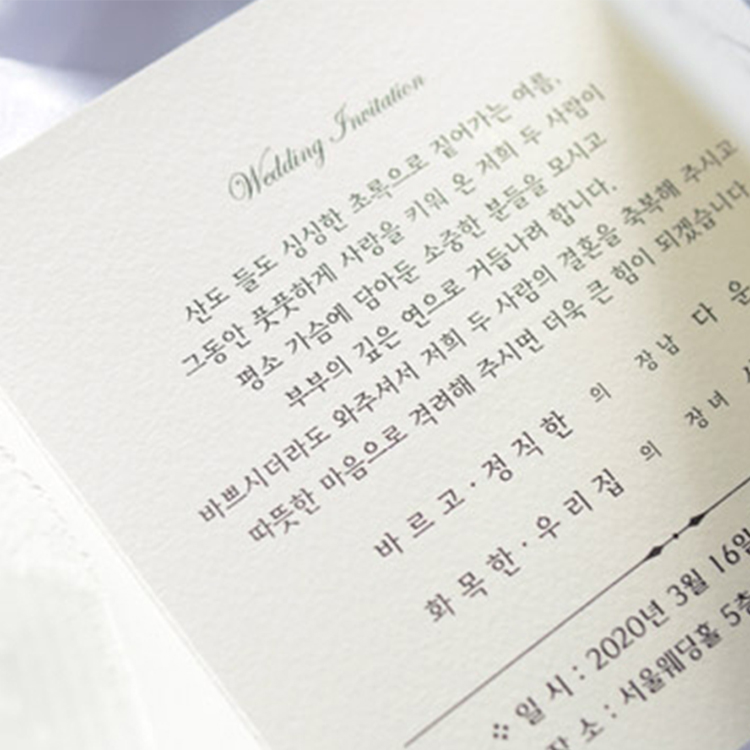 Wedding Invitation
산도 들도 싱싱한 초록으로 짙어가는 여름,
그동안 풋풋하게 사랑을 키워 온 저희 두 사람이
평소 가슴에 담아둔 소중한 분들을 모시고
부부의 깊은 연으로 거듭나려 합니다.
바쁘시더라도 와주셔서 저희 두 사람의 결혼을 축복해 주시고
따뜻한 마음으로 격려해 주시면 더욱 큰 힘이 되겠습니다
바르고·정직한 의 장남 다운
화목한·우리집 의 장녀
일시 : 2020년 3월 16일
장소 : 서울웨딩홀 5층